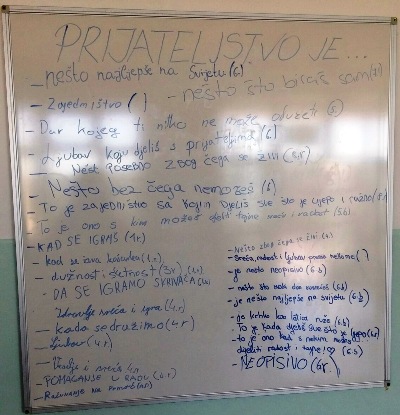 PRIJATELJSTVO JE...
- nešto najljepše na Svijetu (6.)
- nešto što biraš sam
- Zajedništvo ( )
- Dar kojeg ti nitko ne može oduzeti (5)
- Ljubav koju dijeliš s prijateljima (6)
- Nešt posebno zbog čega se živi
- Nešto bez čega nemožeš
- To je zajedništvo sa kojim dijeliš sve što je lijepo i ružno
- To je ono s kim možeš dijeliti tajne sreću i radost (5.b)
- KAD SE IGRAŠ (1.r)
- kad se
- dužnost i sretnost (3r) (1.r)
- DA SE IGRAMO SKRIVAČA
- Zdravlje sreća i igra (4.r)
- kada se družimo (4.r)
- Ljubav (4.r)
- Veselje i sreća 4.r
- POMAGANJE U RADU (4.r)
- Računanje na Pomoć
- Nešto zbog čega se živi
- Sreća, radost i ljubav prema nekome ( )
- je nešto neopisivo (6.b)
- nešto što (6.b)
- je nešto najljepše na svijetu (6.b)
- je krhko kao latica ruže (6.b)
- To je kada dijeliš sve što je lijepo (4.r)
- to je ono kad s nekim možeš dijeliti radost i tajne! ♡ (6.b)
- NEOPISIVO (6r.)